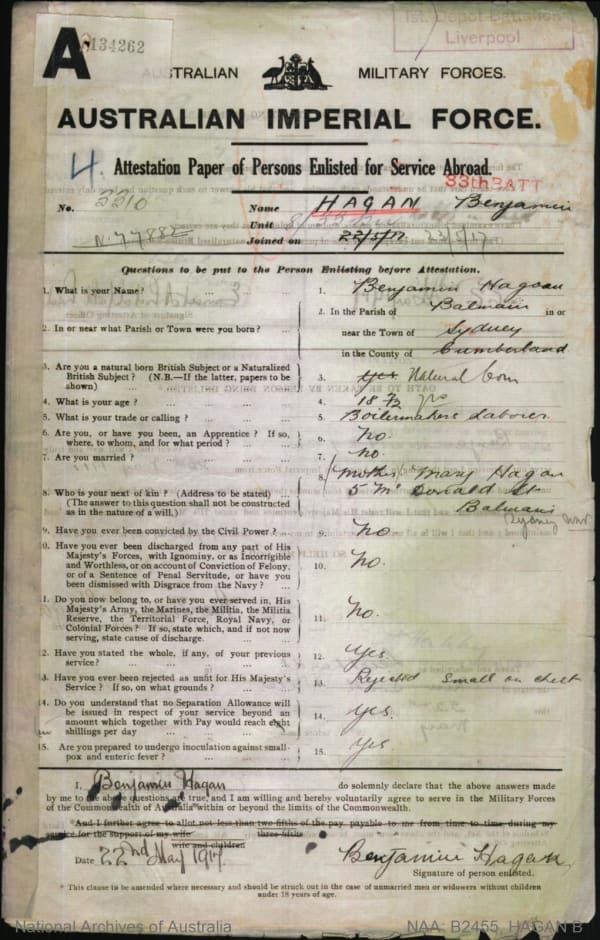 A
134262
1st. Depot Battalion
Liverpool
AUSTRALIAN MILITARY FORCES.
AUSTRALIAN IMPERIAL FORCE.
4. Attestation Paper of Persons Enlisted for Service Abroad.
33th BATT
No. 3310 Name HAGAN Benjamin
N.77882 Unit
Joined on 22/5/17. 22/5/17
Questions to be put to the Person Enlisting before Attestation.
1. What is your Name? ... 1. Benjamin Hagan
2. In or near what Parish or Town were you born? ... 2. In the Parish of Balmain in or
near the Town of Sydney
in the County of Cumberland
3. Are you a natural born British Subject or a Naturalized
British Subject? (N.B.—If the latter, papers to be
shown) ... 3. Yes Natural born
4. What is your age? ... 4. 18 yrs
5. What is your trade or calling? ... 5. Boilermakers Laborer
6. Are you, or have you been, an Apprentice? If so,
where, to whom, and for what period? ... 6. No.
7. Are you married? ... 7. No
8. Who is your next of kin? (Address to be stated) ... 8. (Mother) Mary Hagan
(The answer to this question shall not be constructed
as in the nature of a will.) 5 Mc Donald St
Balmain
Sydney NSW
9. Have you ever been convicted by the Civil Power? ... 9. No
0. Have you ever been discharged from any part of His
Majesty's Forces, with Ignominy, or as Incorrigible
and Worthless, or on account of Conviction of Felony,
or of a Sentence of Penal Servitude, or have you
been dismissed with Disgrace from the Navy? ... 10. No.
1. Do you now belong to, or have you ever served in, His
Majesty's Army, the Marines, the Militia, the Militia
Reserve, the Territorial Force, Royal Navy, or
Colonial Forces? If so, state which, and if not now
serving, state cause of discharge. 11. No.
2. Have you stated the whole, if any, of your previous
service? ... 12. Yes.
3. Have you ever been rejected as unfit for His Majesty's
Service? If so, on what grounds? ... 13. Rejected Small on chest
4. Do you understand that no Separation Allowance will
be issued in respect of your service beyond an
amount which together with Pay would reach eight
shillings per day ... 14. Yes.
15. Are you prepared to undergo inoculation against small-
pox and enteric fever? ... 15. Yes
I, Benjamin Hagan do solemnly declare that the above answers made
by me to the above questions are true, and I am willing and hereby voluntarily agree to serve in the Military Forces
of the Commonwealth of Australia within or beyond the limits of the Commonwealth.
*And I further agree to allot not less than two-fifths of the pay payable to me from time to time during my
three-fifths
service for the support of my wife
wife and children
Date 22nd May 1917. Benjamin Hagan
Signature of person enlisted.
* This clause to be amended where necessary and should be struck out in the case of unmarried men or widowers without children
under 18 years of age.
National Archives of Australia NAA: B2455, HAGAN B